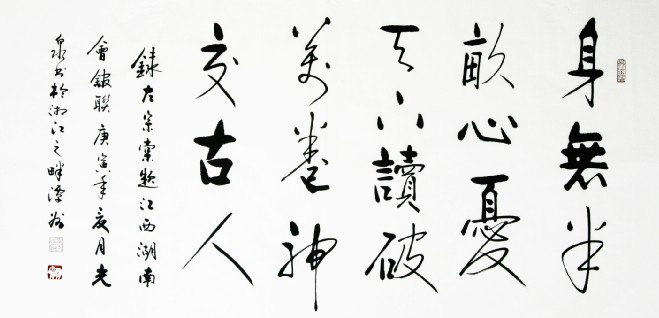 身無半
畝心憂
天下讀破
萬卷神
交古人
錄左宗棠題江西湖南
會館聯庚寅年夏月光
泉書於湘江之畔